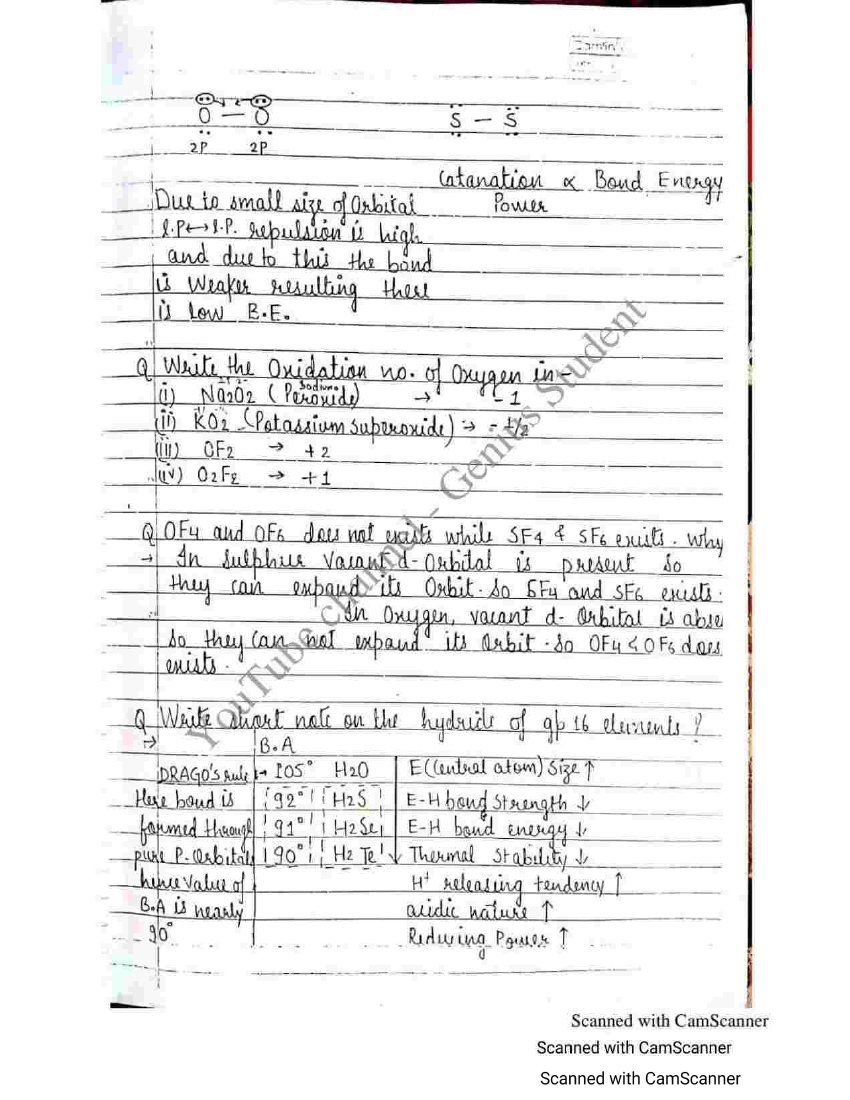 O — O
S — S
2P 2P
Catanation ∝ Bond Energy
Power
Due to small size of Orbital
l.P↔l.P. repulsion is high
and due to this the bond
is Weaker resulting there
is low B.E.
Q Write the Oxidation no. of Oxygen in -
(i) Na2O2 (Sodium Peroxide) → -1
(ii) KO2 (Potassium Superoxide) → -1/2
(iii) OF2 → +2
(iv) O2F2 → +1
Q OF4 and OF6 does not exists while SF4 & SF6 exists. Why
→ In Sulphur Vacant d-Orbital is present so
they can expand its Orbit. So SF4 and SF6 exists.
In Oxygen, vacant d-Orbital is abse
so they can not expand its Orbit. So OF4 & OF6 does
exists.
Q Write short note on the hydride of gp 16 elements?
→ B.A
DRAGO's rule → 105° H2O E(Central atom) Size ↑
Here bond is 92° H2S E-H bond Strength ↓
formed through 91° H2Se E-H bond energy ↓
pure P-Orbitals 90° H2Te ↓ Thermal Stability ↓
hence value of H+ releasing tendency ↑
B.A is nearly acidic nature ↑
90° Reducing Power ↑
YouTube channel - Genius Student
Scanned with CamScanner
Scanned with CamScanner
Scanned with CamScanner